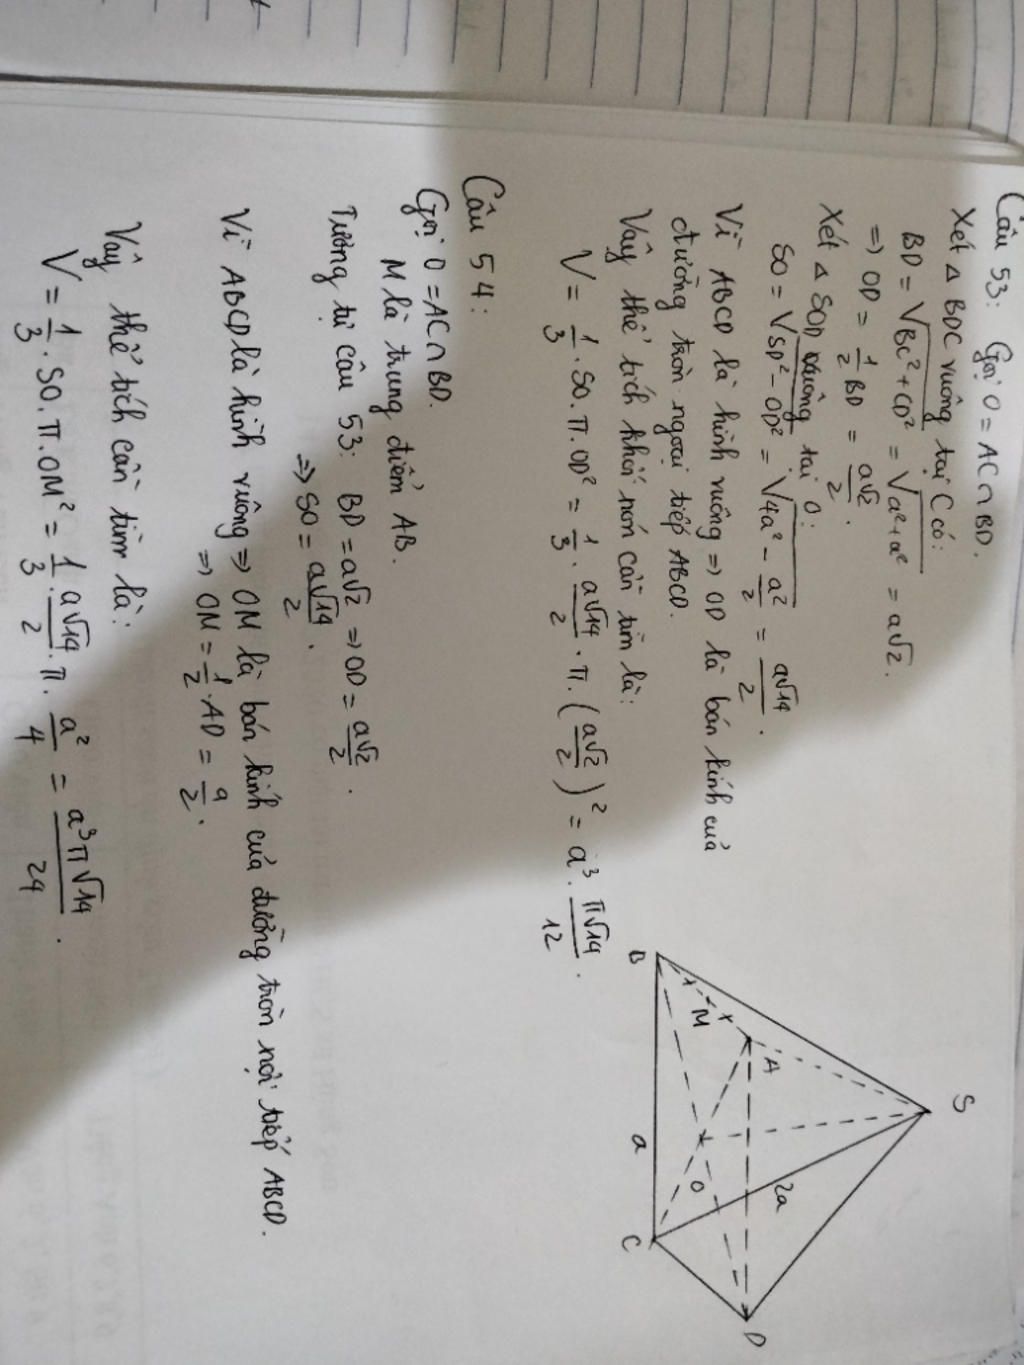 Câu 53: Gọi O = AC ∩ BD.
Xét Δ BDC vuông tại C có:
BD = √(BC² + CD²) = √(a² + a²) = a√2.
⇒ OD = 1/2 BD = a√2/2.
Xét Δ SOD vuông tại O:
SO = √(SD² - OD²) = √(4a² - a²/2) = a√14/2.
Vì ABCD là hình vuông ⇒ OD là bán kính của
đường tròn ngoại tiếp ABCD.
Vậy thể tích khối nón cần tìm là:
V = 1/3 . SO . π . OD² = 1/3 . a√14/2 . π . (a√2/2)² = a³ . π√14/12 .
S
A
M
B
O
2a
a
C
D
Câu 54:
Gọi O = AC ∩ BD.
M là trung điểm AB.
Tương tự câu 53: BD = a√2 ⇒ OD = a√2/2 .
⇒ SO = a√14/2 .
Vì ABCD là hình vuông ⇒ OM là bán kính của đường tròn nội tiếp ABCD.
⇒ OM = 1/2 . AD = a/2 .
Vậy thể tích cần tìm là:
V = 1/3 . SO . π . OM² = 1/3 . a√14/2 . π . a²/4 = a³π√14/24 .